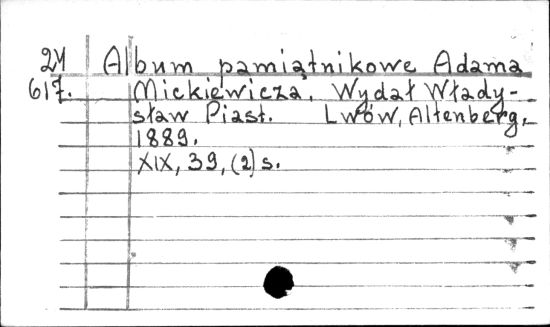 2M Album pamiątnikowe Adama
617. Mickiewicza. Wydał Włady-
sław Piast. Lwów, Altenberg,
1889.
XIX, 39, (2) s.